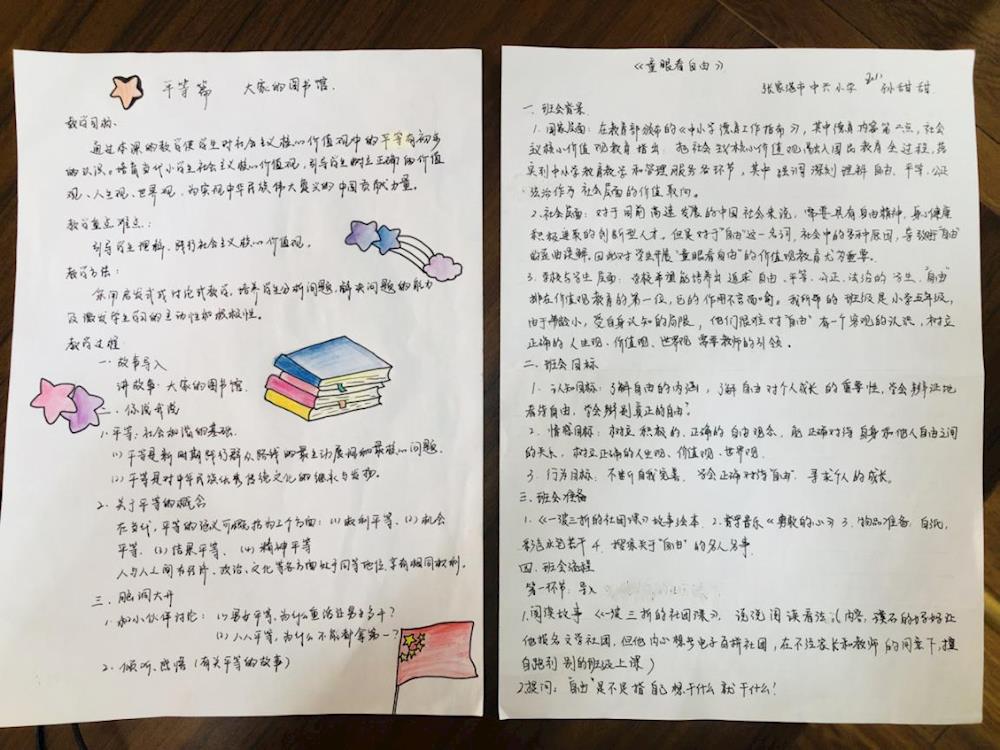 平等篇 大家的图书馆.
教学目标.
通过本课的教学使学生对社会主义核心价值观中的平等有初步
的认识。培育当代小学生社会主义核心价值观,引导学生树立正确的价值
观、人生观、世界观,为实现中华民族伟大复兴的中国贡献力量。
教学重点难点:
引导学生理解、践行社会主义核心价值观。
教学方法:
采用启发式或讨论式教学,培养学生分析问题,解决问题的能力
及激发学生学习的主动性和积极性。
教学过程
一.故事导入
讲故事:大家的图书馆.
二.你说我说
1.平等:社会和谐的基础.
(1)平等是新时期践行群众路线的最主力展词和最核心问题.
(2)平等是对中华民族优秀传统文化的继承与发扬.
2.关于平等的概念
在当代,平等的涵义可概括为4个方面:(1)权利平等.(2)机会
平等.(3)结果平等.(4)精神平等
人与人之间有经济、政治、文化等各方面处于同等地位,享有相同权利.
三.脑洞大开
1.和小伙伴讨论:(1)男女平等,为什么童话经男多于?
(2)人人平等,为什么不能都拿第一?
2.倾听、感悟(有关平等的故事)
《童眼看自由》
张家港市中兴小学 孙甜甜
一.班会背景
1.国家层面:在教育部颁布的《中小学德育工作指南》,其中德育内容第二点,社会
主义核心价值观教育指出:把社会主义核心价值观融入国民教育全过程,落
实到中小学教育教学和管理服务各环节,其中强调深刻理解自由、平等、公正
法治作为社会层面的价值取向。
2.社会层面:对于目前高速发展的中国社会来说,需要具有自由精神,身心健康
积极进取的创新型人才。但是对于"自由"这一名词,社会中的多种原因,导致对"自由"
的歪曲误解。因此对学生开展"童眼看自由"的价值观教育尤为重要。
3.学校与学生层面:学校希望能培养出追求自由、平等、公正、法治的学生,"自由"
排在价值观教育的第一位,它的作用不言而喻。我所带的班级是小学五年级,
由于年龄小,受自身认知的局限,他们很难对"自由"有一个客观的认识,树立
正确的人生观、价值观、世界观需要教师的引领。
二.班会目标
1.认知目标:了解自由的内涵,了解自由对个人成长的重要性,学会辩证地
看待自由,学会辨别真正的自由?
2.情感目标:树立积极的、正确的自由观念,能正确对待自身和他人自由之间
的关系,树立正确的人生观、价值观、世界观.
3.行为目标:不断自我完善,学会正确对待"自由",寻求个人的成长。
三.班会准备
1.《一波三折的社团课》故事绘本 2.背景音乐《勇敢的心》3.物品准备:白纸,
彩色水笔若干 4.搜索关于"自由"的名人名事.
四.班会流程
第一环节:导入
1.阅读故事《一波三折的社团课》,说说阅读看法(内容:琪石的妈妈让
他报名文学社团,但他内心想学电子百拼社团,在不经家长和教师的同意下,擅
自跑到别的班级上课)
2.提问:"自由"是不是指自己想干什么就干什么!